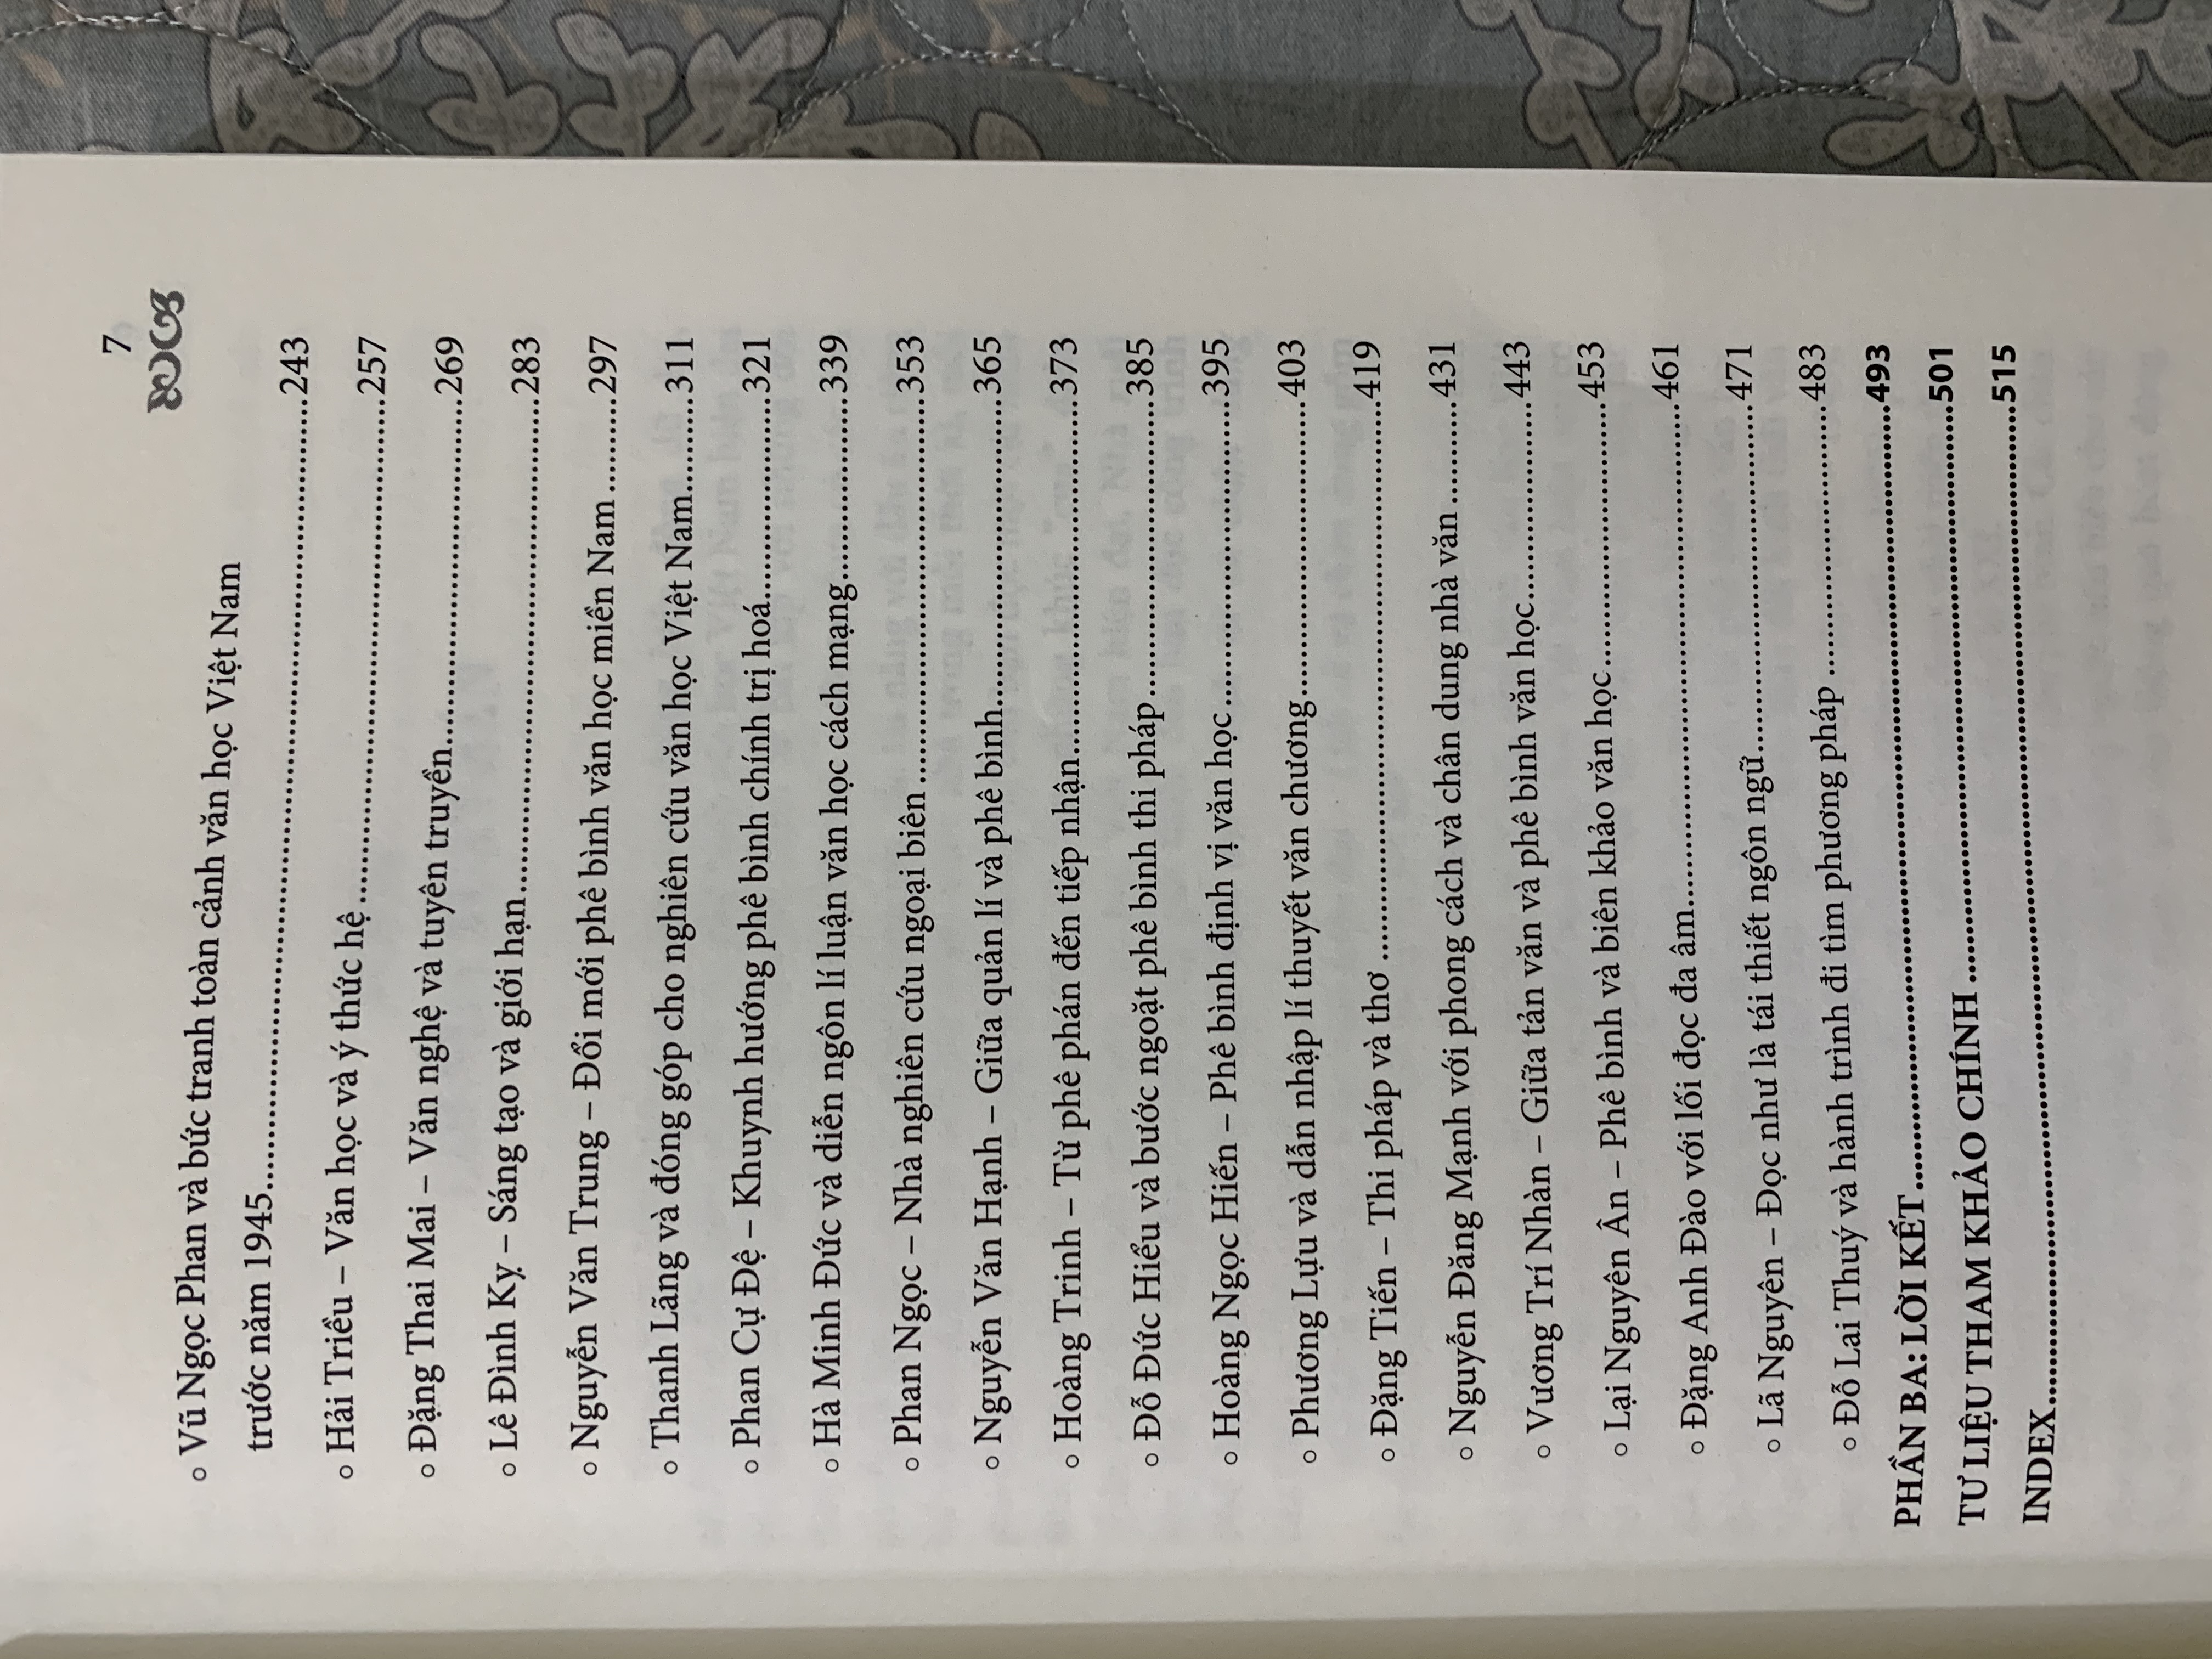 7
◦ Vũ Ngọc Phan và bức tranh toàn cảnh văn học Việt Nam
trước năm 1945....................243
◦ Hải Triều – Văn học và ý thức hệ....................257
◦ Đặng Thai Mai – Văn nghệ và tuyên truyền....................269
◦ Lê Đình Kỵ – Sáng tạo và giới hạn....................283
◦ Nguyễn Văn Trung – Đổi mới phê bình văn học miền Nam..........297
◦ Thanh Lãng và đóng góp cho nghiên cứu văn học Việt Nam..........311
◦ Phan Cự Đệ – Khuynh hướng phê bình chính trị hoá....................321
◦ Hà Minh Đức và diễn ngôn lí luận văn học cách mạng....................339
◦ Phan Ngọc – Nhà nghiên cứu ngoại biên....................353
◦ Nguyễn Văn Hạnh – Giữa quản lí và phê bình....................365
◦ Hoàng Trinh – Từ phê phán đến tiếp nhận....................373
◦ Đỗ Đức Hiểu và bước ngoặt phê bình thi pháp....................385
◦ Hoàng Ngọc Hiến – Phê bình định vị văn học....................395
◦ Phương Lựu và dẫn nhập lí thuyết văn chương....................403
◦ Đặng Tiến – Thi pháp và thơ....................419
◦ Nguyễn Đăng Mạnh với phong cách và chân dung nhà văn..........431
◦ Vương Trí Nhàn – Giữa tản văn và phê bình văn học....................443
◦ Lại Nguyên Ân – Phê bình và biên khảo văn học....................453
◦ Đặng Anh Đào với lối đọc đa âm....................461
◦ Lã Nguyên – Đọc như là tái thiết ngôn ngữ....................471
◦ Đỗ Lai Thuý và hành trình đi tìm phương pháp....................483
PHẦN BA: LỜI KẾT....................493
TƯ LIỆU THAM KHẢO CHÍNH....................501
INDEX....................515